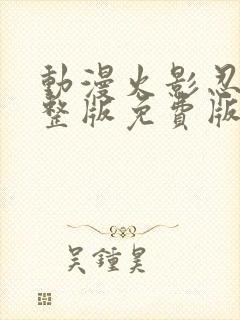 動漫火影忍
整版免費版
吴鍾昊